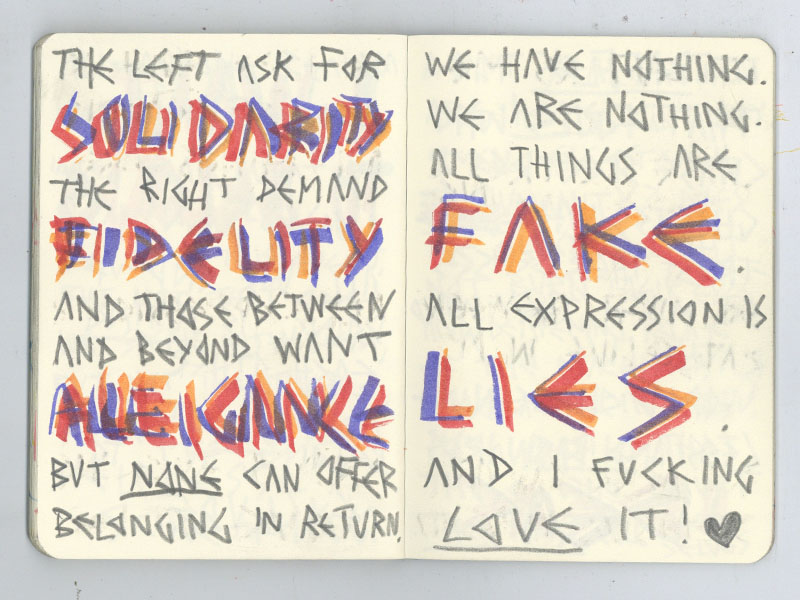 THE LEFT ASK FOR
SOLIDARITY
THE RIGHT DEMAND
FIDELITY
AND THOSE BETWEEN
AND BEYOND WANT
ALLEIGANCE
BUT NONE CAN OFFER
BELONGING IN RETURN.
WE HAVE NOTHING.
WE ARE NOTHING.
ALL THINGS ARE
FAKE.
ALL EXPRESSION IS
LIES.
AND I FUCKING
LOVE IT! ♥